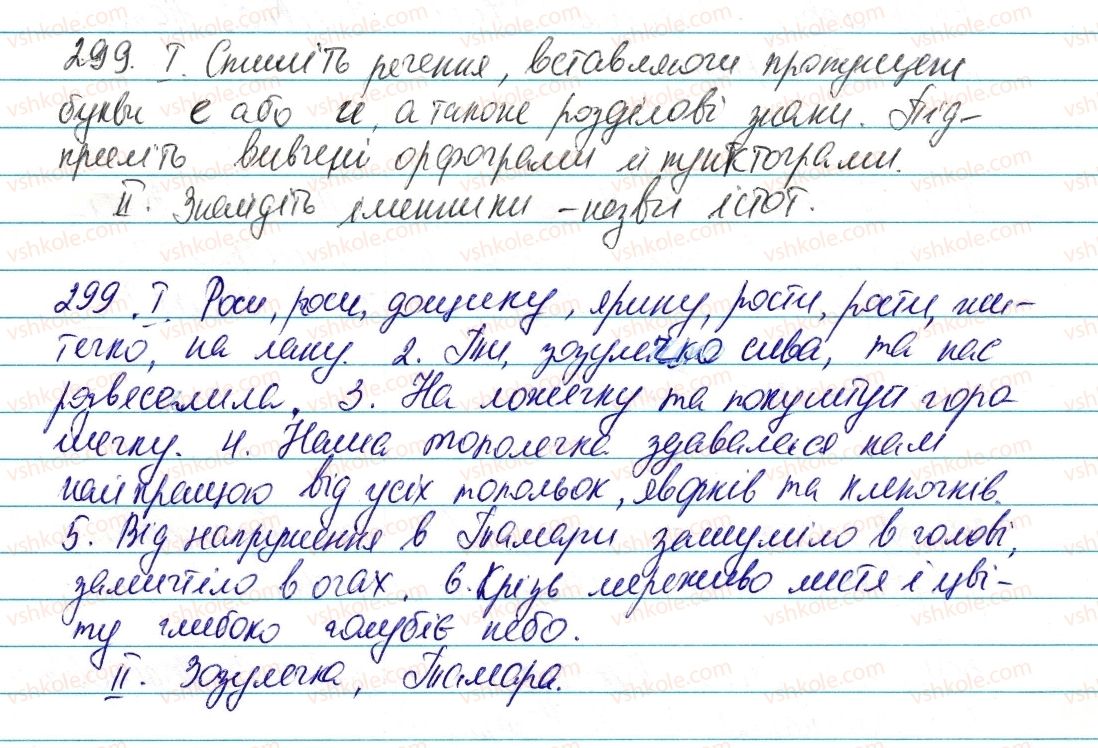 299. I. Спишіть речення, вставляючи пропущені
букви е або и, а також розділові знаки. Під-
кресліть вивчені орфограми й пунктограми.
II. Знайдіть іменники - назви істот.
299. I. Роси, роси, дощику, ярину, рости, рости, жи-
течко, на лану. 2. Ти, зозулечко сива, та нас
розвеселила. 3. На ложечку та покуштуй горо-
шечку. 4. Наша тополечка здавалася нам
найкращою від усіх топольок, яворків та кленочків.
5. Від напруження в Тамари зашуміло в голові,
замигтіло в очах. 6. Крізь мереживо листя і цві-
ту глибоко голубіє небо.
II. Зозулечка, Тамара.